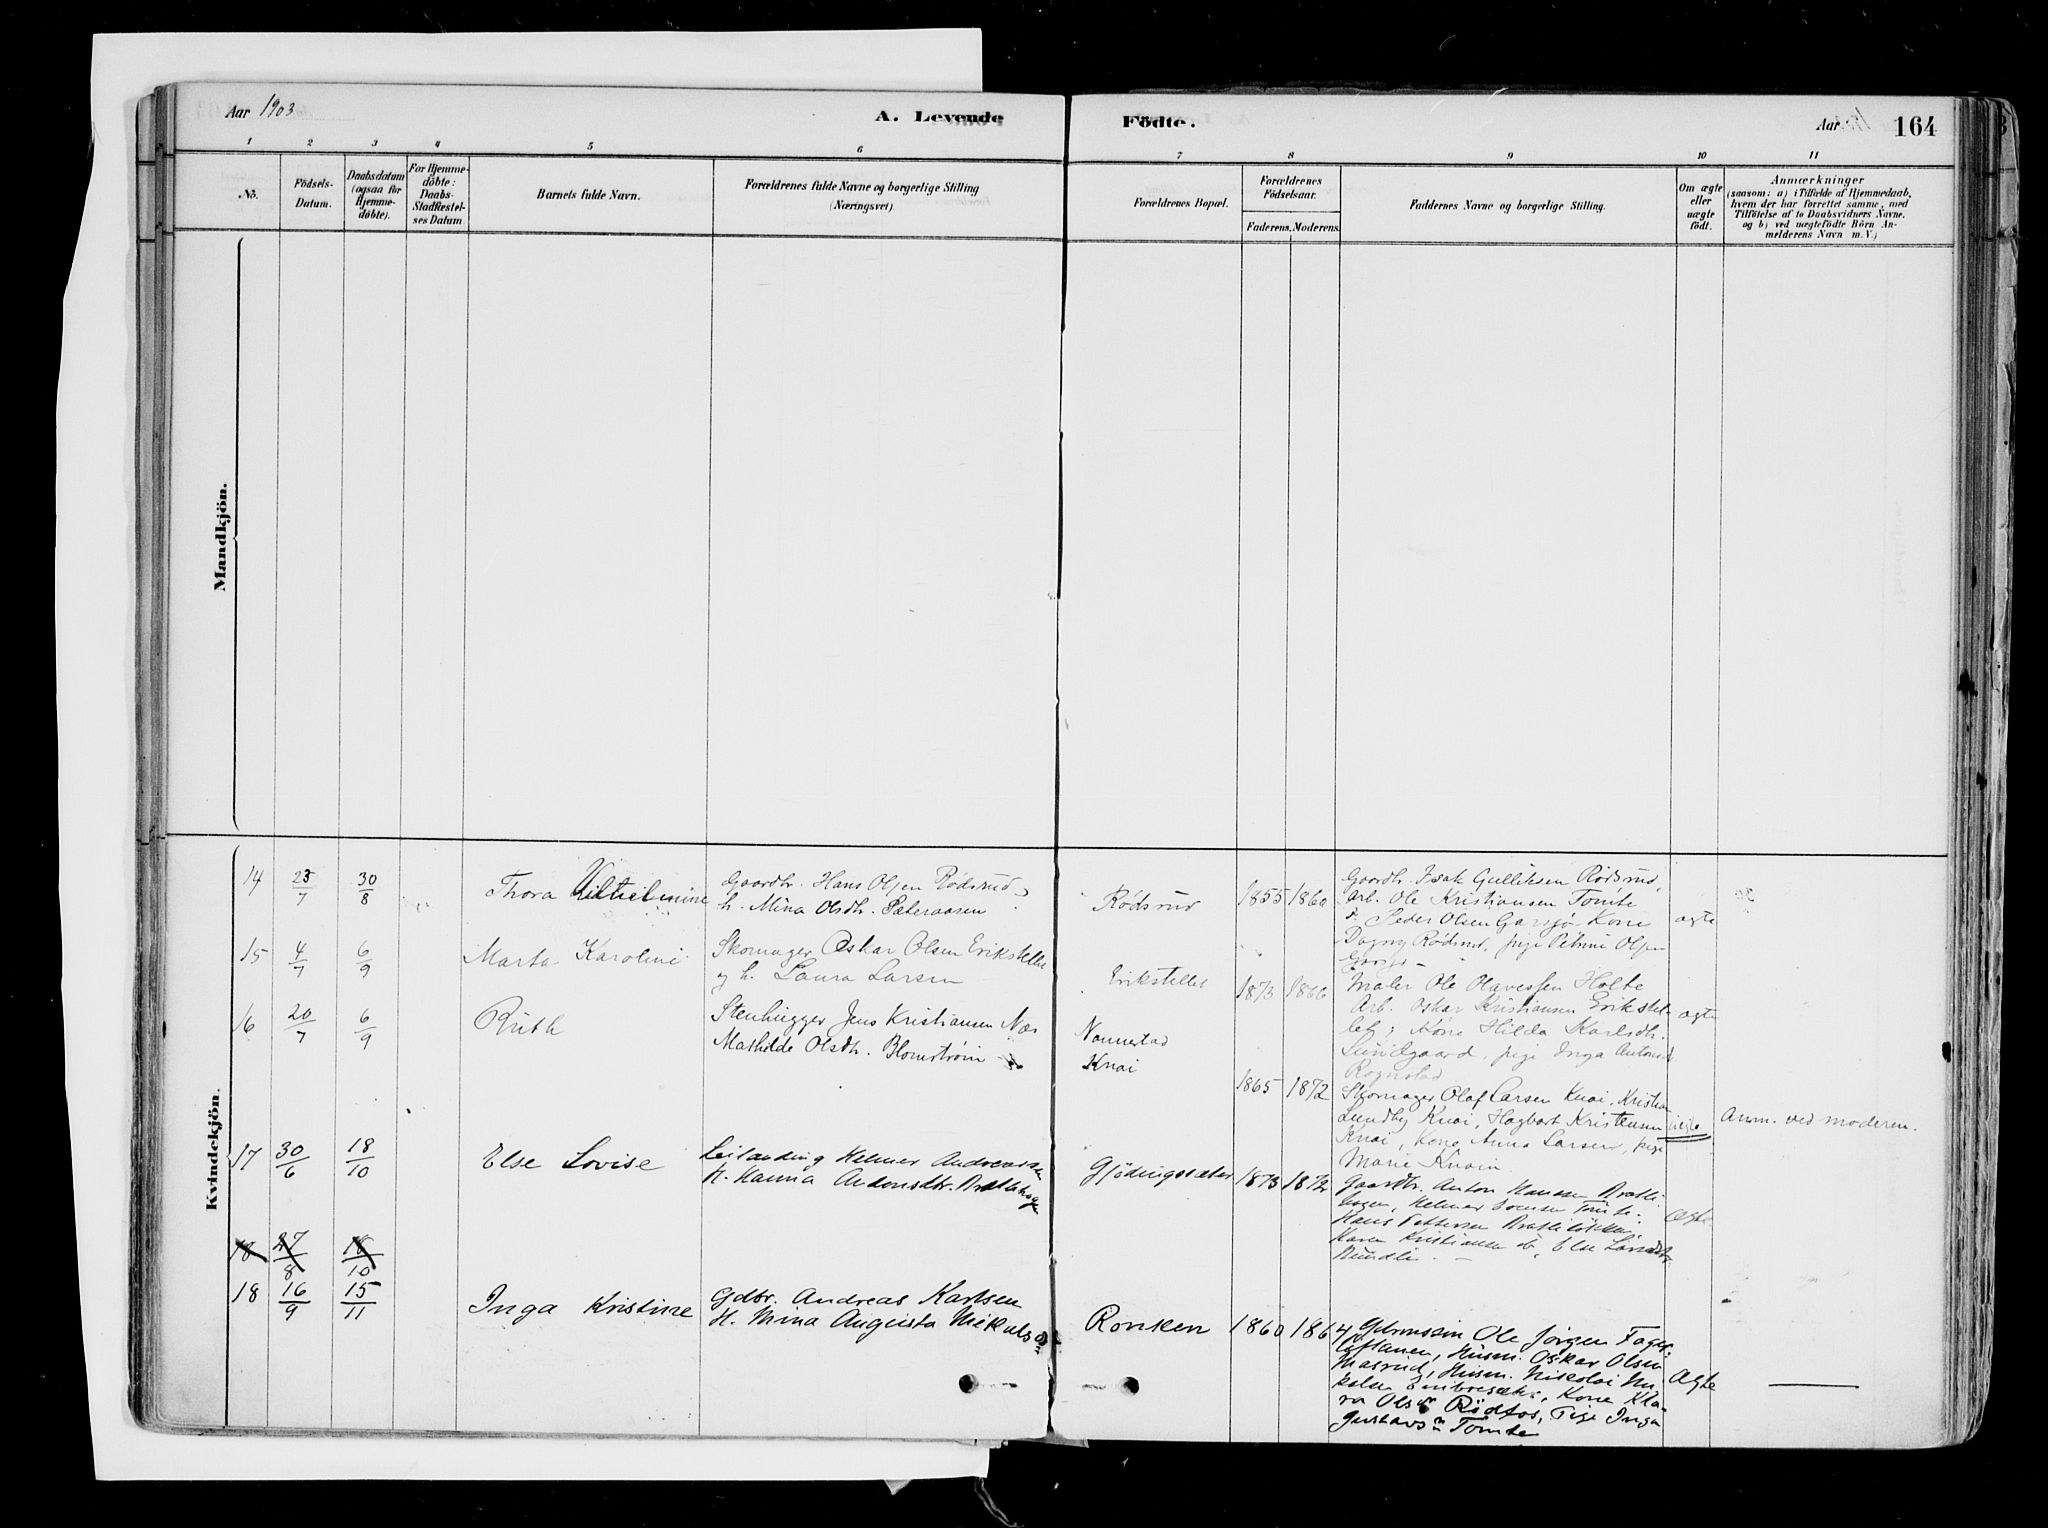 Aar 1903
A. Levende
Födte.
Aar
164
1 2 3 4 5 6 7 8 9 10 11
No.
Födsels-
Datum.
Daabsdatum
(ogsaa for
Hjemme-
döbte).
For Hjemme-
döbte:
Daabs-
Stadfæstel-
ses Datum
Barnets fulde Navn.
Forældrenes fulde Navne og borgerlige Stilling
(Næringsvei)
Forældrenes Bopæl.
Forældrenes
Födselsaar.
Faderens. Moderens.
Faddernes Navne og borgerlige Stilling.
Om ægte
eller
uægte
födt.
Anmærkninger
(saasom: a) i Tilfælde af Hjemmedaab,
hvem der har forrettet samme, med
Tilföielse af to Daabsvidners Navne.
og b) ved uægtefödte Börn An-
melderens Navn m. V.)
Mandkjön.
Kvindekjön.
14
23/7
30/8
Thora Vilhelmine
Gaardbr. Hans Olsen Rødsrud
h. Mina Olsdtr. Sæteraasen
Rødsrud
1855 1860
Gaardb. Isak Gulliksen Rødsrud,
Arb. Ole Kristiansen Tomte
Peder Olsen Garsjø Kone
Dagny Rødsrud, pige Petrine Olsen
Garsjø
ægte
15
4/7
6/9
Marta Karoline
Skomager Oskar Olsen Erikstellet
og h. Laura Larsen
Erikstellet
1873 1866
Maler Ole Olavessen Holte
Arb. Oskar Kristiansen Erikstel-
let; Kone Hilda Karlsdtr.
Lundgaard, pige Inga Antonsd.
Rognstad
ægte
16
20/7
6/9
Ruth
Stenhugger Jens Kristiansen Næs
Mathilde Olsdtr. Blomstrøm
Nannestad
Knai
1865 1872
Skomager Olaf Larsen Knai, Kristian
Lundby Knai, Hagbart Kristensen
Knai, Kone Anna Larsen, pige
Marie Knain
uægte
Anm. ved moderen.
17
30/6
18/10
Else Lovise
Leilænding Helmer Andreassen
H. Hanna Antonsdtr. Bratlihagen
Gjødingssæter
1873 1872
Gaardbr. Anton Hansen Bratli-
hagen, Helmer Tomte,
Hans Pettersen Bratliløkken,
Karen Kristiansen, Else Larsdtr.
Nundli
Ægte
18
27/8
18/10
18
16/9
15/11
Inga Kristine
Gdbr. Andreas Karlsen
H. Mina Augusta Nikolsen
Ronken
1860 1864
Ole Jörgen Fager-
löftanen, Husm. Oskar Olsen
Masrud, Husm. Nikolai Ni-
kolsen, Kone Kla-
ra Olsen Rödfos, Pige Inga
Gustavsn Tomte
Ægte